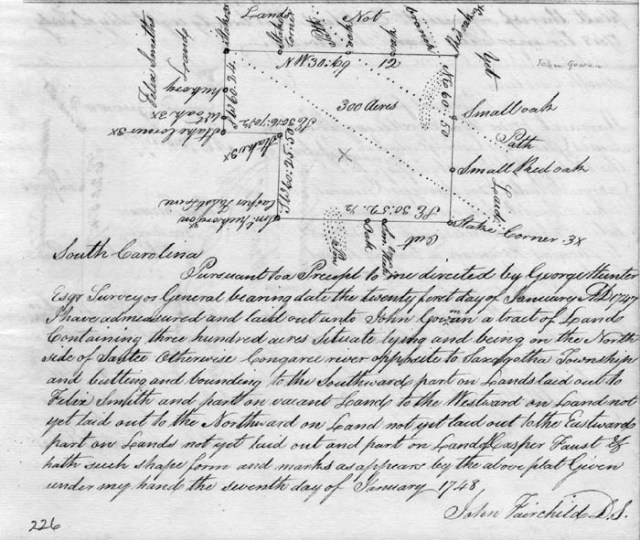 Lands Not
Stake 3x
Stake Corner
Pine
Branch
Red oak 3x
Yet
John Gowen
NW 30:69
12
Felix Smiths
Lands
SW 60.24.
NE 60:50
300 Acres
Small oak
Hickory
Path
Stake Corner 3x
Stake 3x
Small Red oak
Laid
SE 30:52.½
Sm. Hickory
Pine
Oak
Out
Stake Corner 3x
South Carolina
Pursuant to a Precept to me directed by George Hunter
Esqr Surveyor General bearing date the twenty first day of January AD. 1747
I have admeasured and laid out unto John Gowan a tract of Land
Containing three hundred acres Situate lying and being on the North
side of Santee Otherwise Congaree river opposite to Saxagotha Township
and butting and bounding to the Southward part on Lands laid out to
Felix Smith and part on vacant Land to the Westward on Land not
yet laid out to the Northward on Land not yet laid out to the Eastward
part on Lands not yet laid out and part on Land of Casper Faust &
hath such shape form and marks as appears by the above plat Given
under my hand the seventh day of January 1748.
John Fairchild D.S.
226